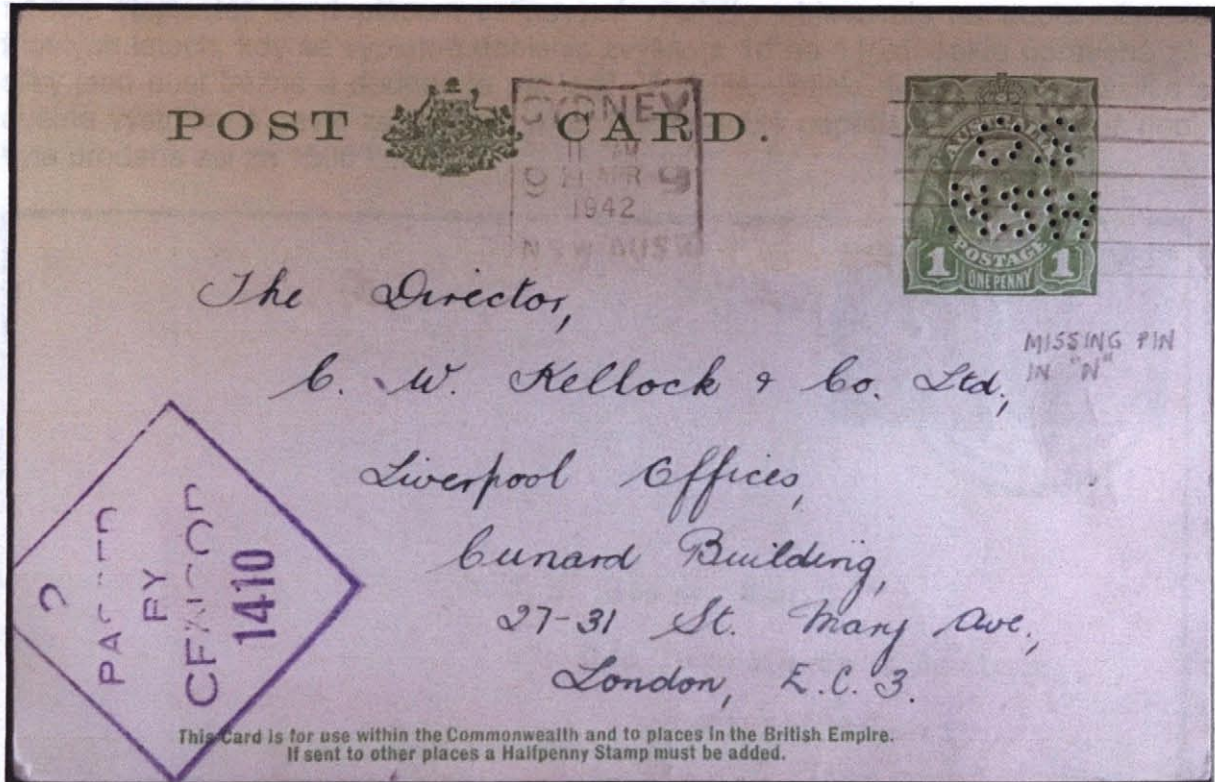 POST CARD.
SYDNEY
11 AM
9 21 APR 9
1942
N.S.W. AUST
AUSTRALIA
OS
NSW
POSTAGE
1 ONE PENNY 1
The Director,
C. W. Kellock & Co. Ltd.,
Liverpool Offices,
Cunard Building,
27-31 St. Mary Ave.,
London, E.C.3.
MISSING PIN
IN "N"
2
PASSED
BY
CENSOR
1410
This Card is for use within the Commonwealth and to places in the British Empire.
If sent to other places a Halfpenny Stamp must be added.